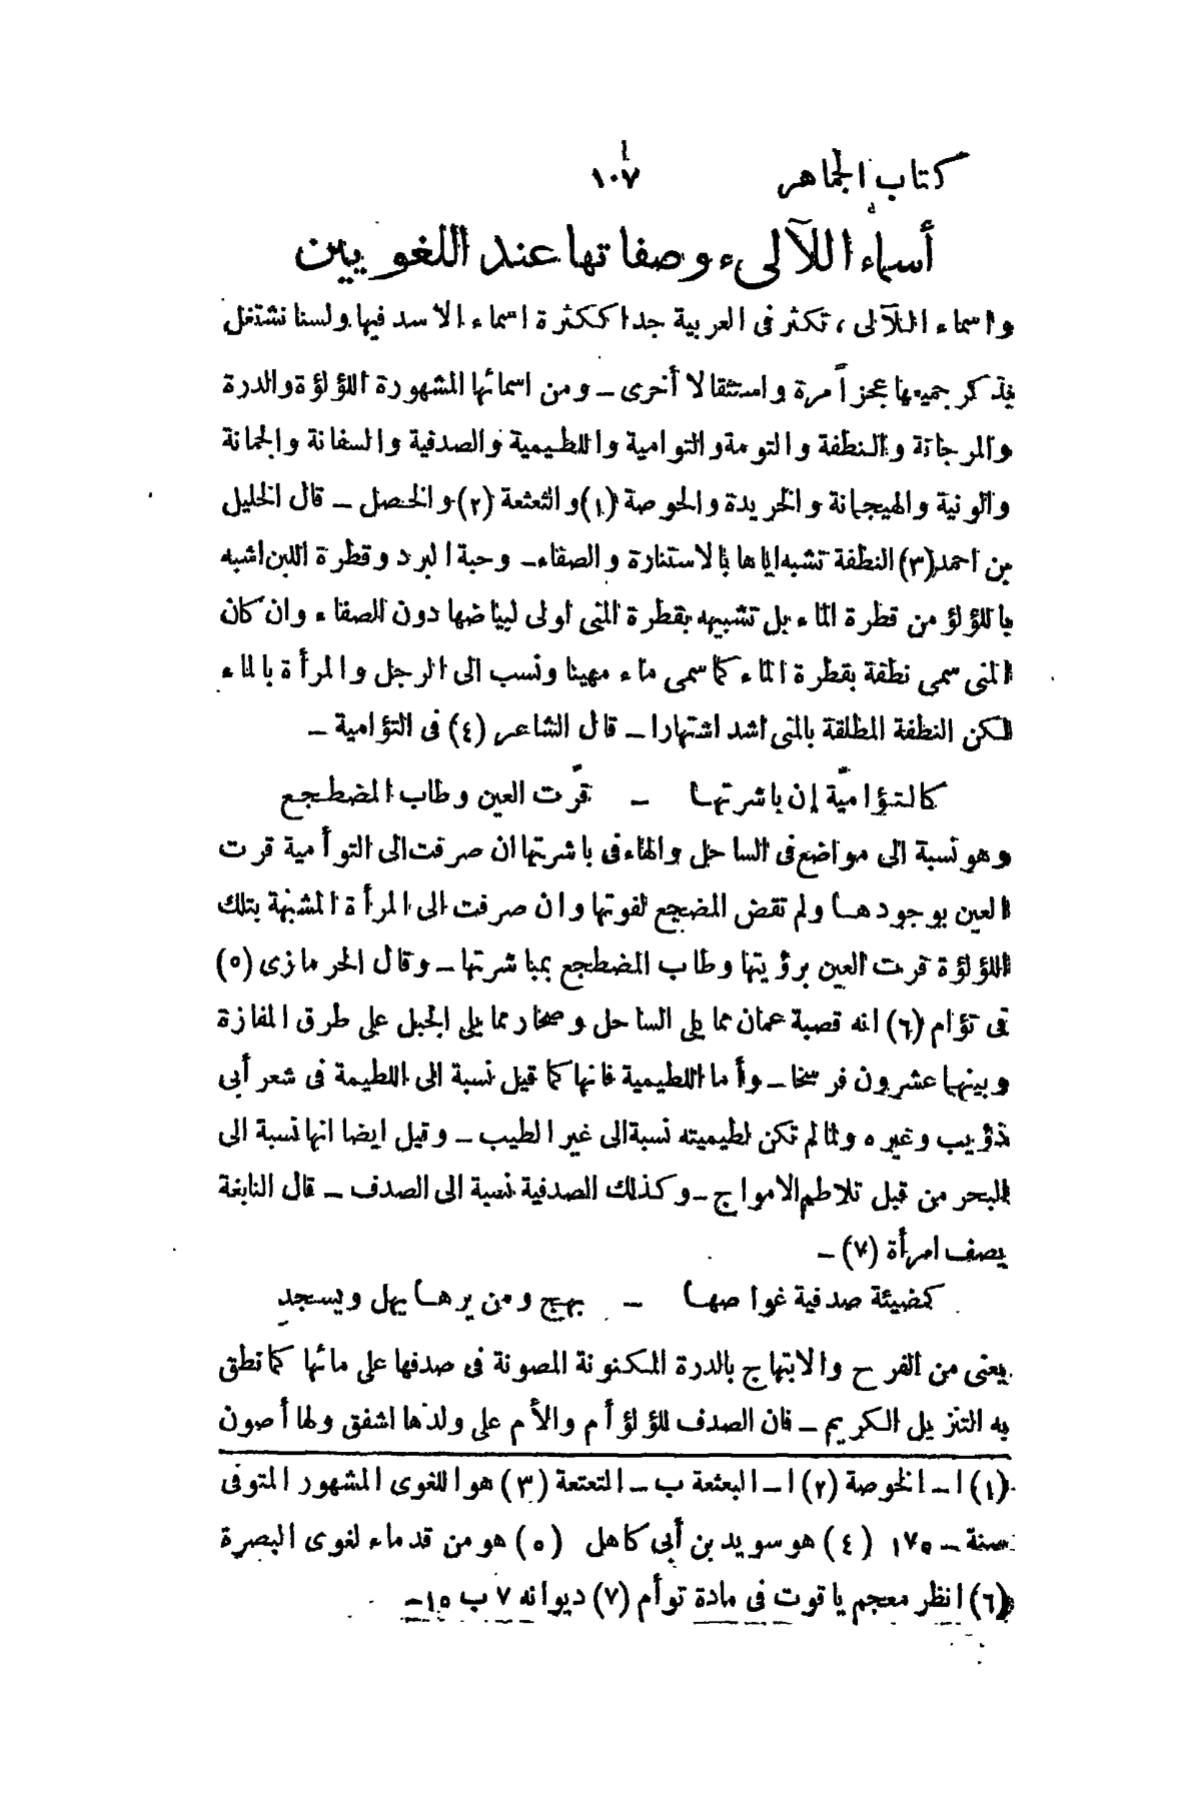 كتاب الجماهر ١٠٧
أسماء اللآلىء وصفاتها عند اللغويين
واسماء اللآلى ، تكثر فى العربية جدا ككثرة اسماء الاسد فيها ولسنا نشتغل
بذكر جميعها عجزاً مرة واستثقالا أخرى – ومن اسمائها المشهورة اللؤلؤة والدرة
والمرجانة والنطفة والتومة والتوامية واللطيمية والصدفية والسفانة والجمانة
والونية والهيجمانة والخريدة والحوصة (١) والثعثعة (٢) والخصل – قال الخليل
بن احمد (٣) النطفة تشبه اياها بالاستنارة والصفاء – وحبة البرد وقطرة اللبن اشبه
باللؤلؤ من قطرة الماء بل تشبيهه بقطرة المنى اولى لبياضها دون الصفاء وان كان
المنى سمى نطفة بقطرة الماء كما سمى ماء مهينا ونسب الى الرجل والمرأة بالماء
لكن النطفة المطلقة بالمنى اشد اشتهارا – قال الشاعر (٤) فى التؤامية –
كالتؤاميّة إن باشرتها – قرّت العين وطاب المضطجع
وهو نسبة الى مواضع فى الساحل والهاء فى باشرتها ان صرفت الى التوأمية قرت
العين بوجودها ولم تقض المضجع لفوتها وان صرفت الى المرأة المشبهة بتلك
اللؤلؤة قرت العين برؤيتها وطاب المضطجع بمباشرتها – وقال الحرمازى (٥)
فى تؤام (٦) انه قصبة عمان مما يلى الساحل وصحار مما يلى الجبل على طرق المفازة
وبينهما عشرون فرسخا – وأما اللطيمية فانها كما قيل نسبة الى اللطيمة فى شعر أبى
ذؤيب وغيره ولما لم تكن لطيميته نسبة الى غير الطيب – وقيل ايضا انها نسبة الى
البحر من قبل تلاطم الامواج – وكذلك الصدفية نسبة الى الصدف – قال النابغة
يصف امرأة (٧) –
كمضيئة صدفية غواصها – بهج ومن يرها يهل ويسجد
يعنى من الفرح والابتهاج بالدرة المكنونة المصونة فى صدفها على مائها كما نطق
به التنزيل الكريم – فان الصدف للؤلؤ أم والأم على ولدها اشفق ولها أصون
(١) ا – الخوصة (٢) ا – البعثعة ب – التعتعة (٣) هو اللغوى المشهور المتوفى
سنة – ١٧٥ (٤) هو سويد بن أبى كاهل (٥) هو من قدماء لغوى البصرة
(٦) انظر معجم ياقوت فى مادة توأم (٧) ديوانه ٧ ب ١٥ –